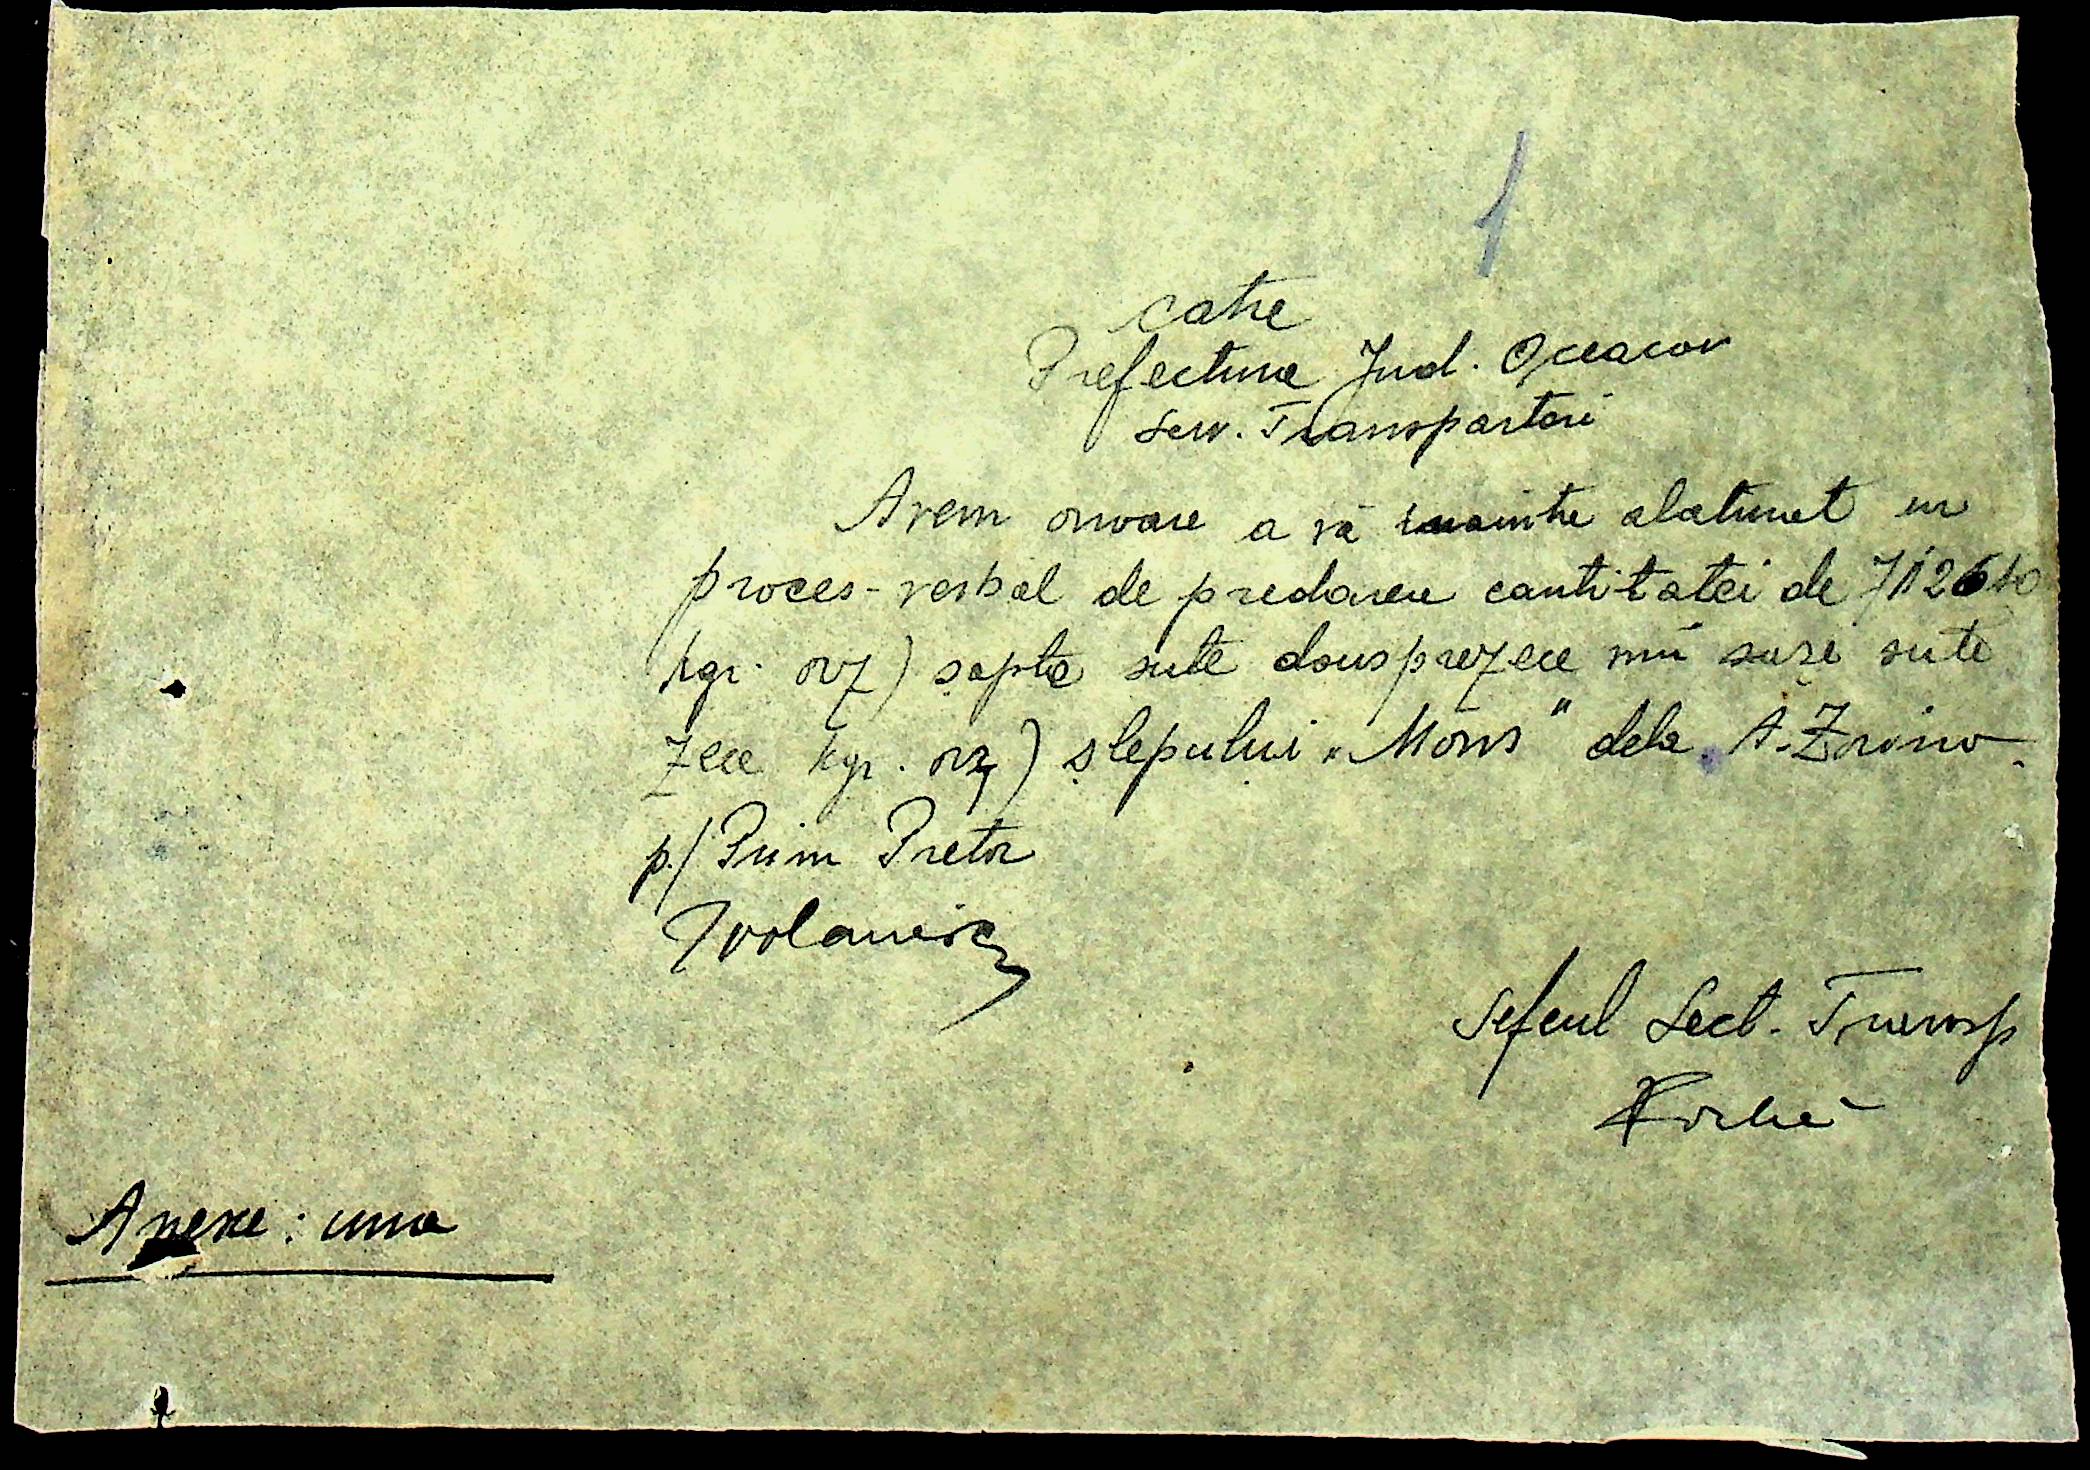 1
Catre
Prefectura Jud. Oceacov
Serv. Transporturi
Avem onoare a vă inainte alaturat un
proces-verbal de predarea cantitatei de 712610
kgr. orz) șapte sute dousprezece mii șase sute
zece kgr. orz) șlepului „Mons" dela A. Zorino
p/ Prim Pretor
Sefcul Sect. Transp
Anexe: una